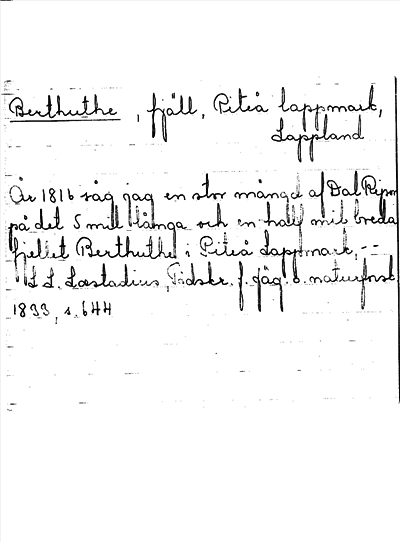 Berthuthe, fjäll, Piteå lappmark,
Lappland
År 1816 såg jag en stor mängd af Dal Ripor
på det 5 mill långa och en half mil breda
fjellet Berthuthe i Piteå Lappmark, --
L. L. Læstadius, Tidskr. f. Jäg. o. naturforsk.
1833, s. 644